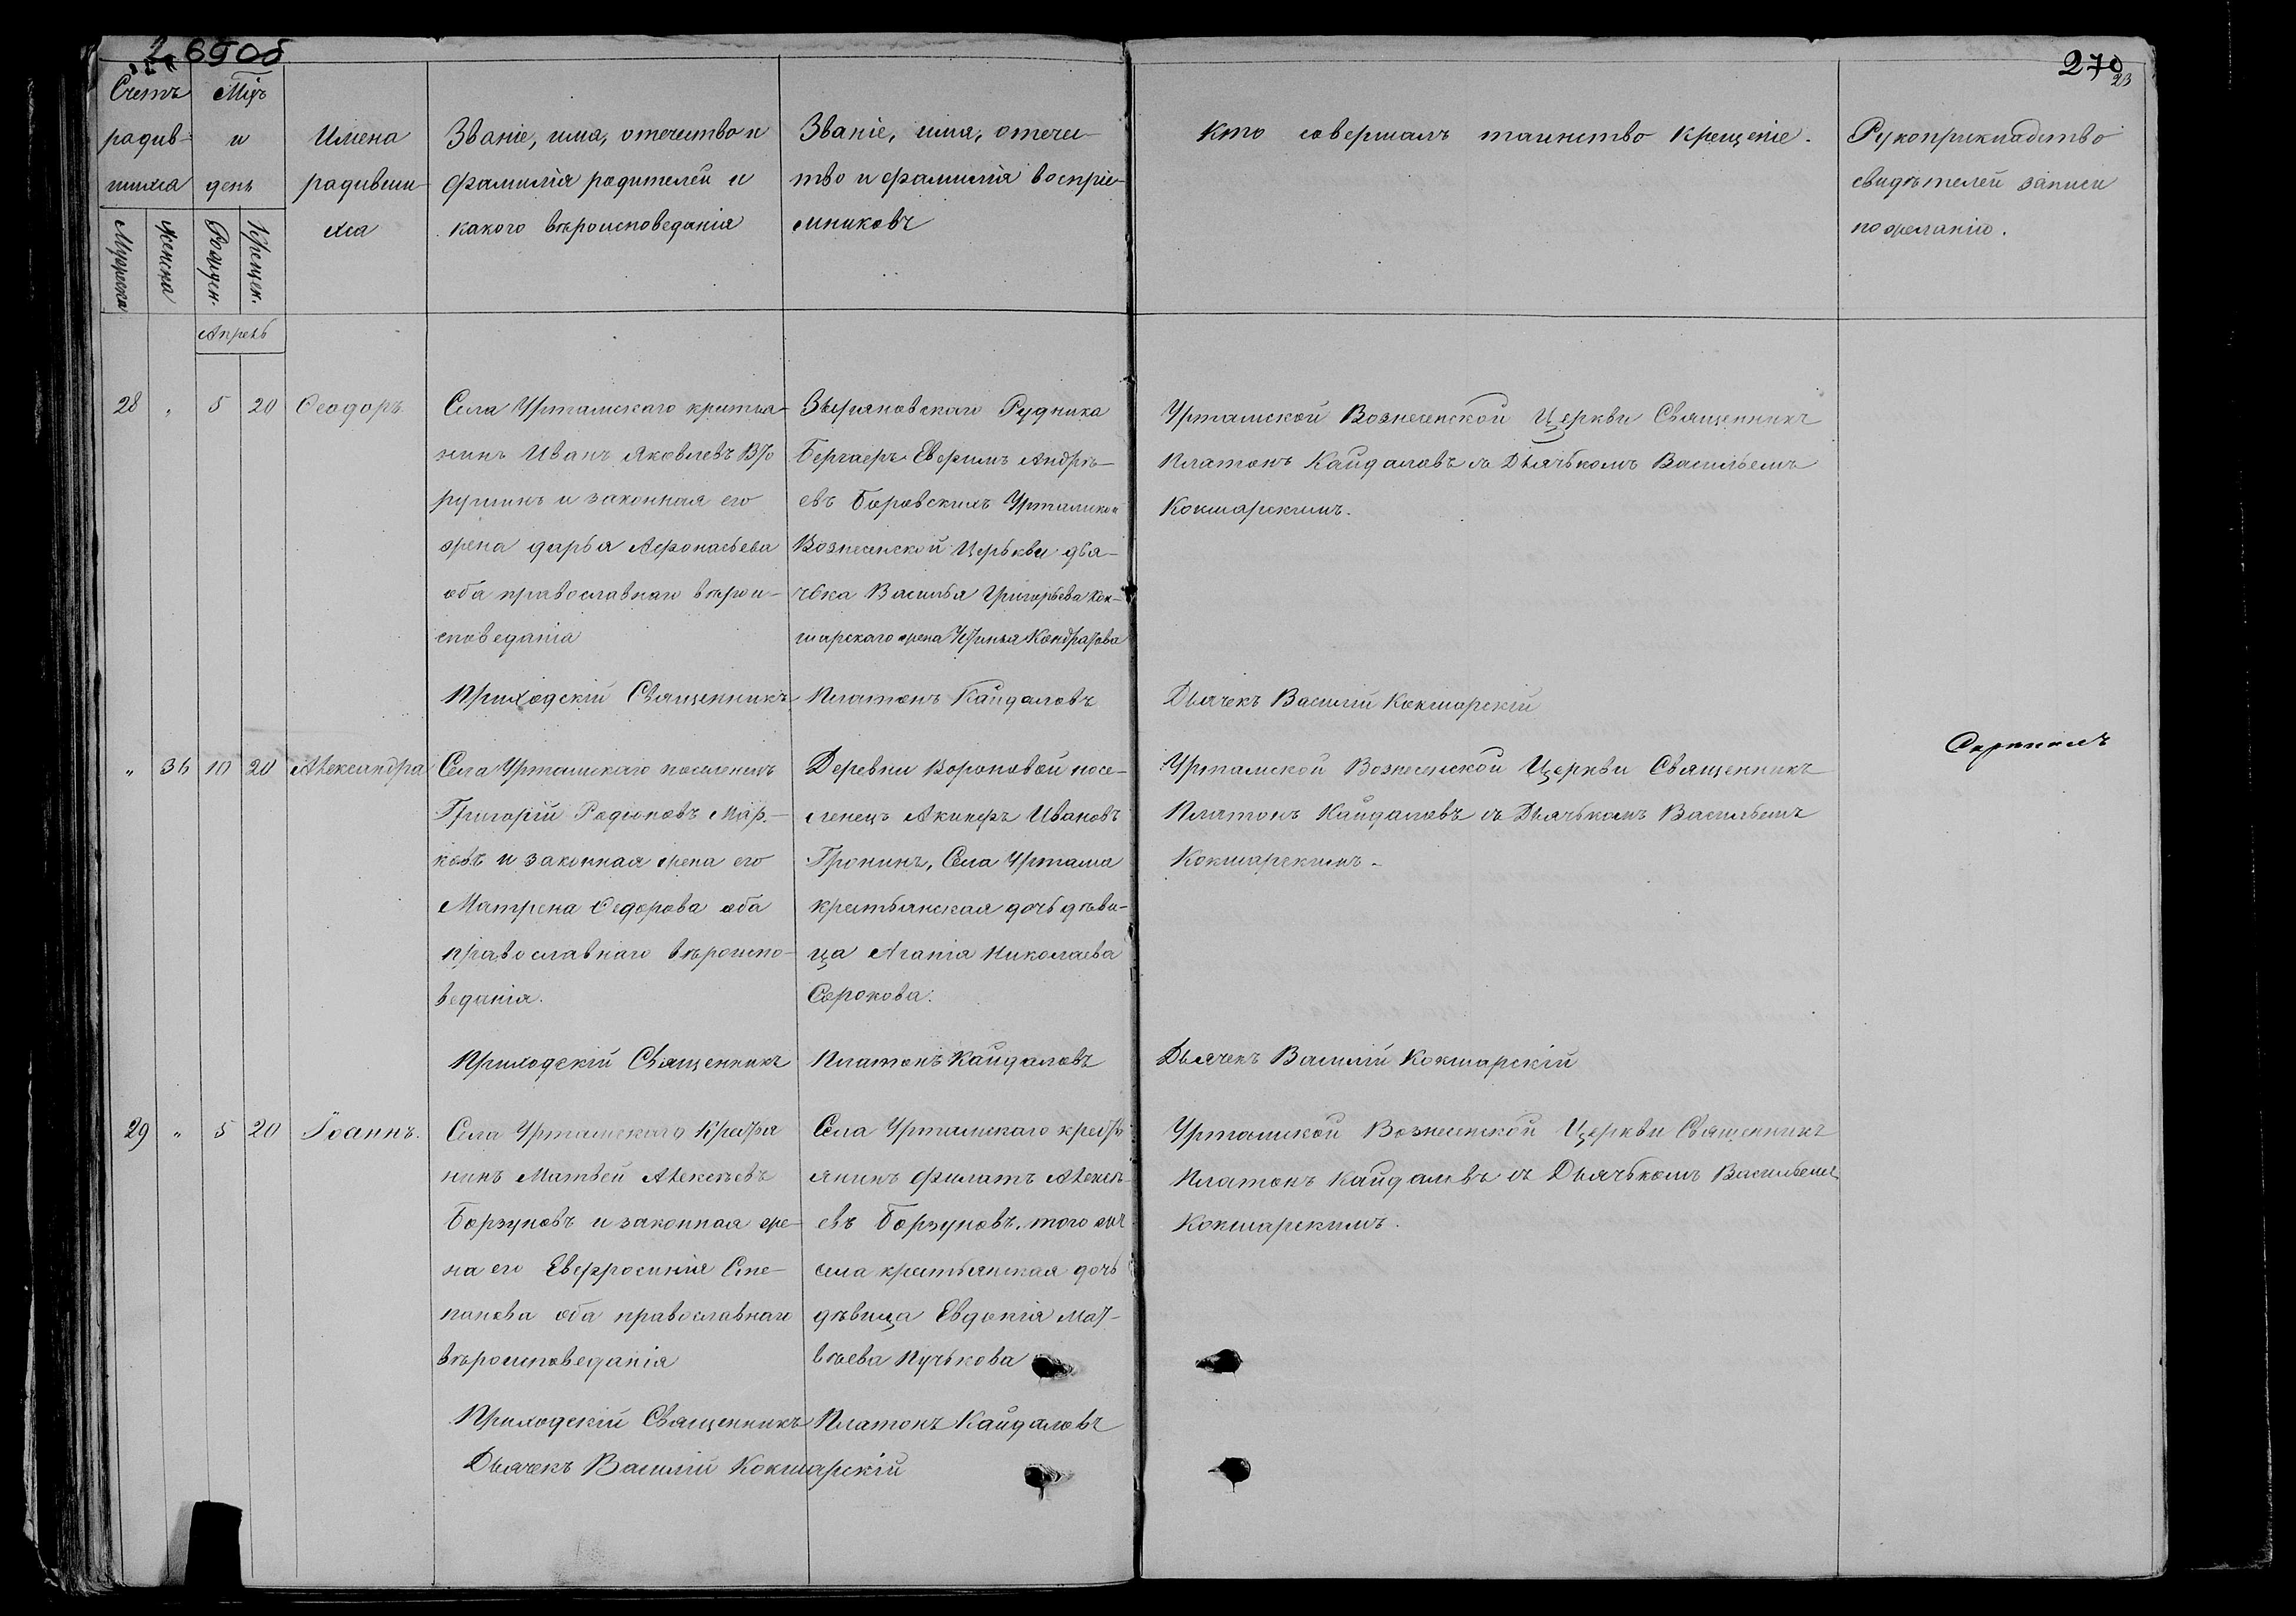 269об
270
23
Счетъ
родив-
шихся
Мѣс.
и
день
Имена
родивши
хся
Званіе, имя, отечество и
фамилія родителей и
какого вѣроисповеданія
Званіе, имя, отече-
тво и фамилія воспріе-
мниковъ
Кто совершалъ таинство крещеніе.
Рукоприкладство
свидѣтелей записи
по желанію.
Мужеска
Женска
Рожден.
Крещен.
Апрель
28 " 5 20 Ѳеодоръ.
Села Уртамскаго кретья-
нинъ Иванъ Яковлевъ Вто
рушинъ и законная его
жена дарья Афонасьева
оба православнаго вѣрои-
споведанія
Зыряновскаго Рудника
Бергаеръ Евфимъ Андрѣ-
евъ Боровскихъ Уртамской
Вознесенской Церькви дья-
чька Василья Григорьева Кок-
шарскаго жена Устинья Кондратова
Уртамской Вознесенской Церкви Священникъ
Платонъ Кайдаловъ съ Дьячькомъ Васильемъ
Кокшарскимъ.
Приходскій Священникъ Платонъ Кайдаловъ
Дьячекъ Василій Кокшарскій
" 36 10 20 Александра
Села Уртамскаго поселенецъ
Григорій Родіоновъ Мар-
ковъ и законная жена его
Матрена Ѳедорова оба
православнаго вѣроиспо-
веданія.
Деревни Вороновой посе-
ленецъ Акинфъ Ивановъ
Пронинъ, Села Уртама
крестьянская дочь дѣви-
ца Агапія Николаева
Сорокова.
Уртамской Вознесенской Церкви Священникъ
Платонъ Кайдаловъ съ Дьячькомъ Васильемъ
Кокшарскимъ.
Приходскій Священникъ Платонъ Кайдаловъ
Дьячекъ Василій Кокшарскій
29 " 5 20 Іоаннъ.
Села Уртамскаго Крестья
нинъ Матвей Алексѣевъ
Борзуновъ и законная же-
на его Евфросинія Сте-
панова оба православнаго
вѣроисповеданія
Села Уртамскаго кресть
янинъ Филатъ Алексѣ-
евъ Борзуновъ, того же
села крестьянская дочь
дѣвица Евдокія Мат-
вѣева Пучькова
Уртамской Вознесенской Церкви Священникъ
Платонъ Кайдаловъ съ Дьячькомъ Васильемъ
Кокшарскимъ.
Приходскій Священникъ Платонъ Кайдаловъ
Дьячекъ Василій Кокшарскій